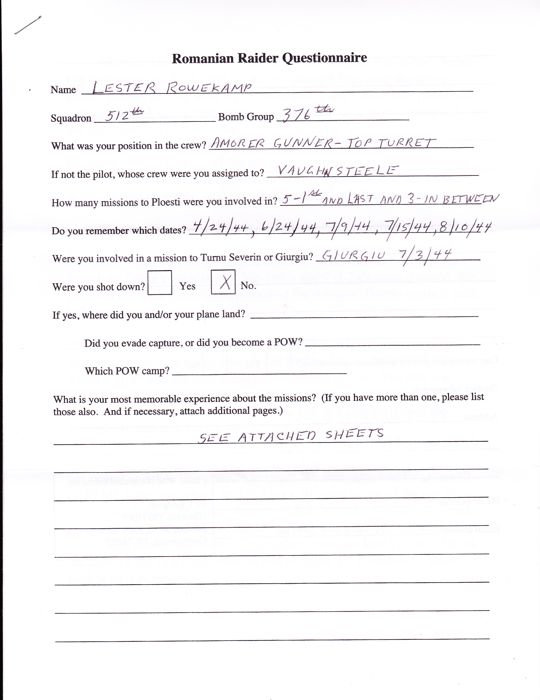 Romanian Raider Questionnaire
Name LESTER ROWEKAMP
Squadron 512th Bomb Group 376th
What was your position in the crew? AMORER GUNNER - TOP TURRET
If not the pilot, whose crew were you assigned to? VAUGHN STEELE
How many missions to Ploesti were you involved in? 5-1st AND LAST AND 3-IN BETWEEN
Do you remember which dates? 4/24/44, 6/24/44, 7/9/44, 7/15/44, 8/10/44
Were you involved in a mission to Turnu Severin or Giurgiu? GIURGIU 7/3/44
Were you shot down? Yes X No.
If yes, where did you and/or your plane land?
Did you evade capture, or did you become a POW?
Which POW camp?
What is your most memorable experience about the missions? (If you have more than one, please list
those also. And if necessary, attach additional pages.)
SEE ATTACHED SHEETS